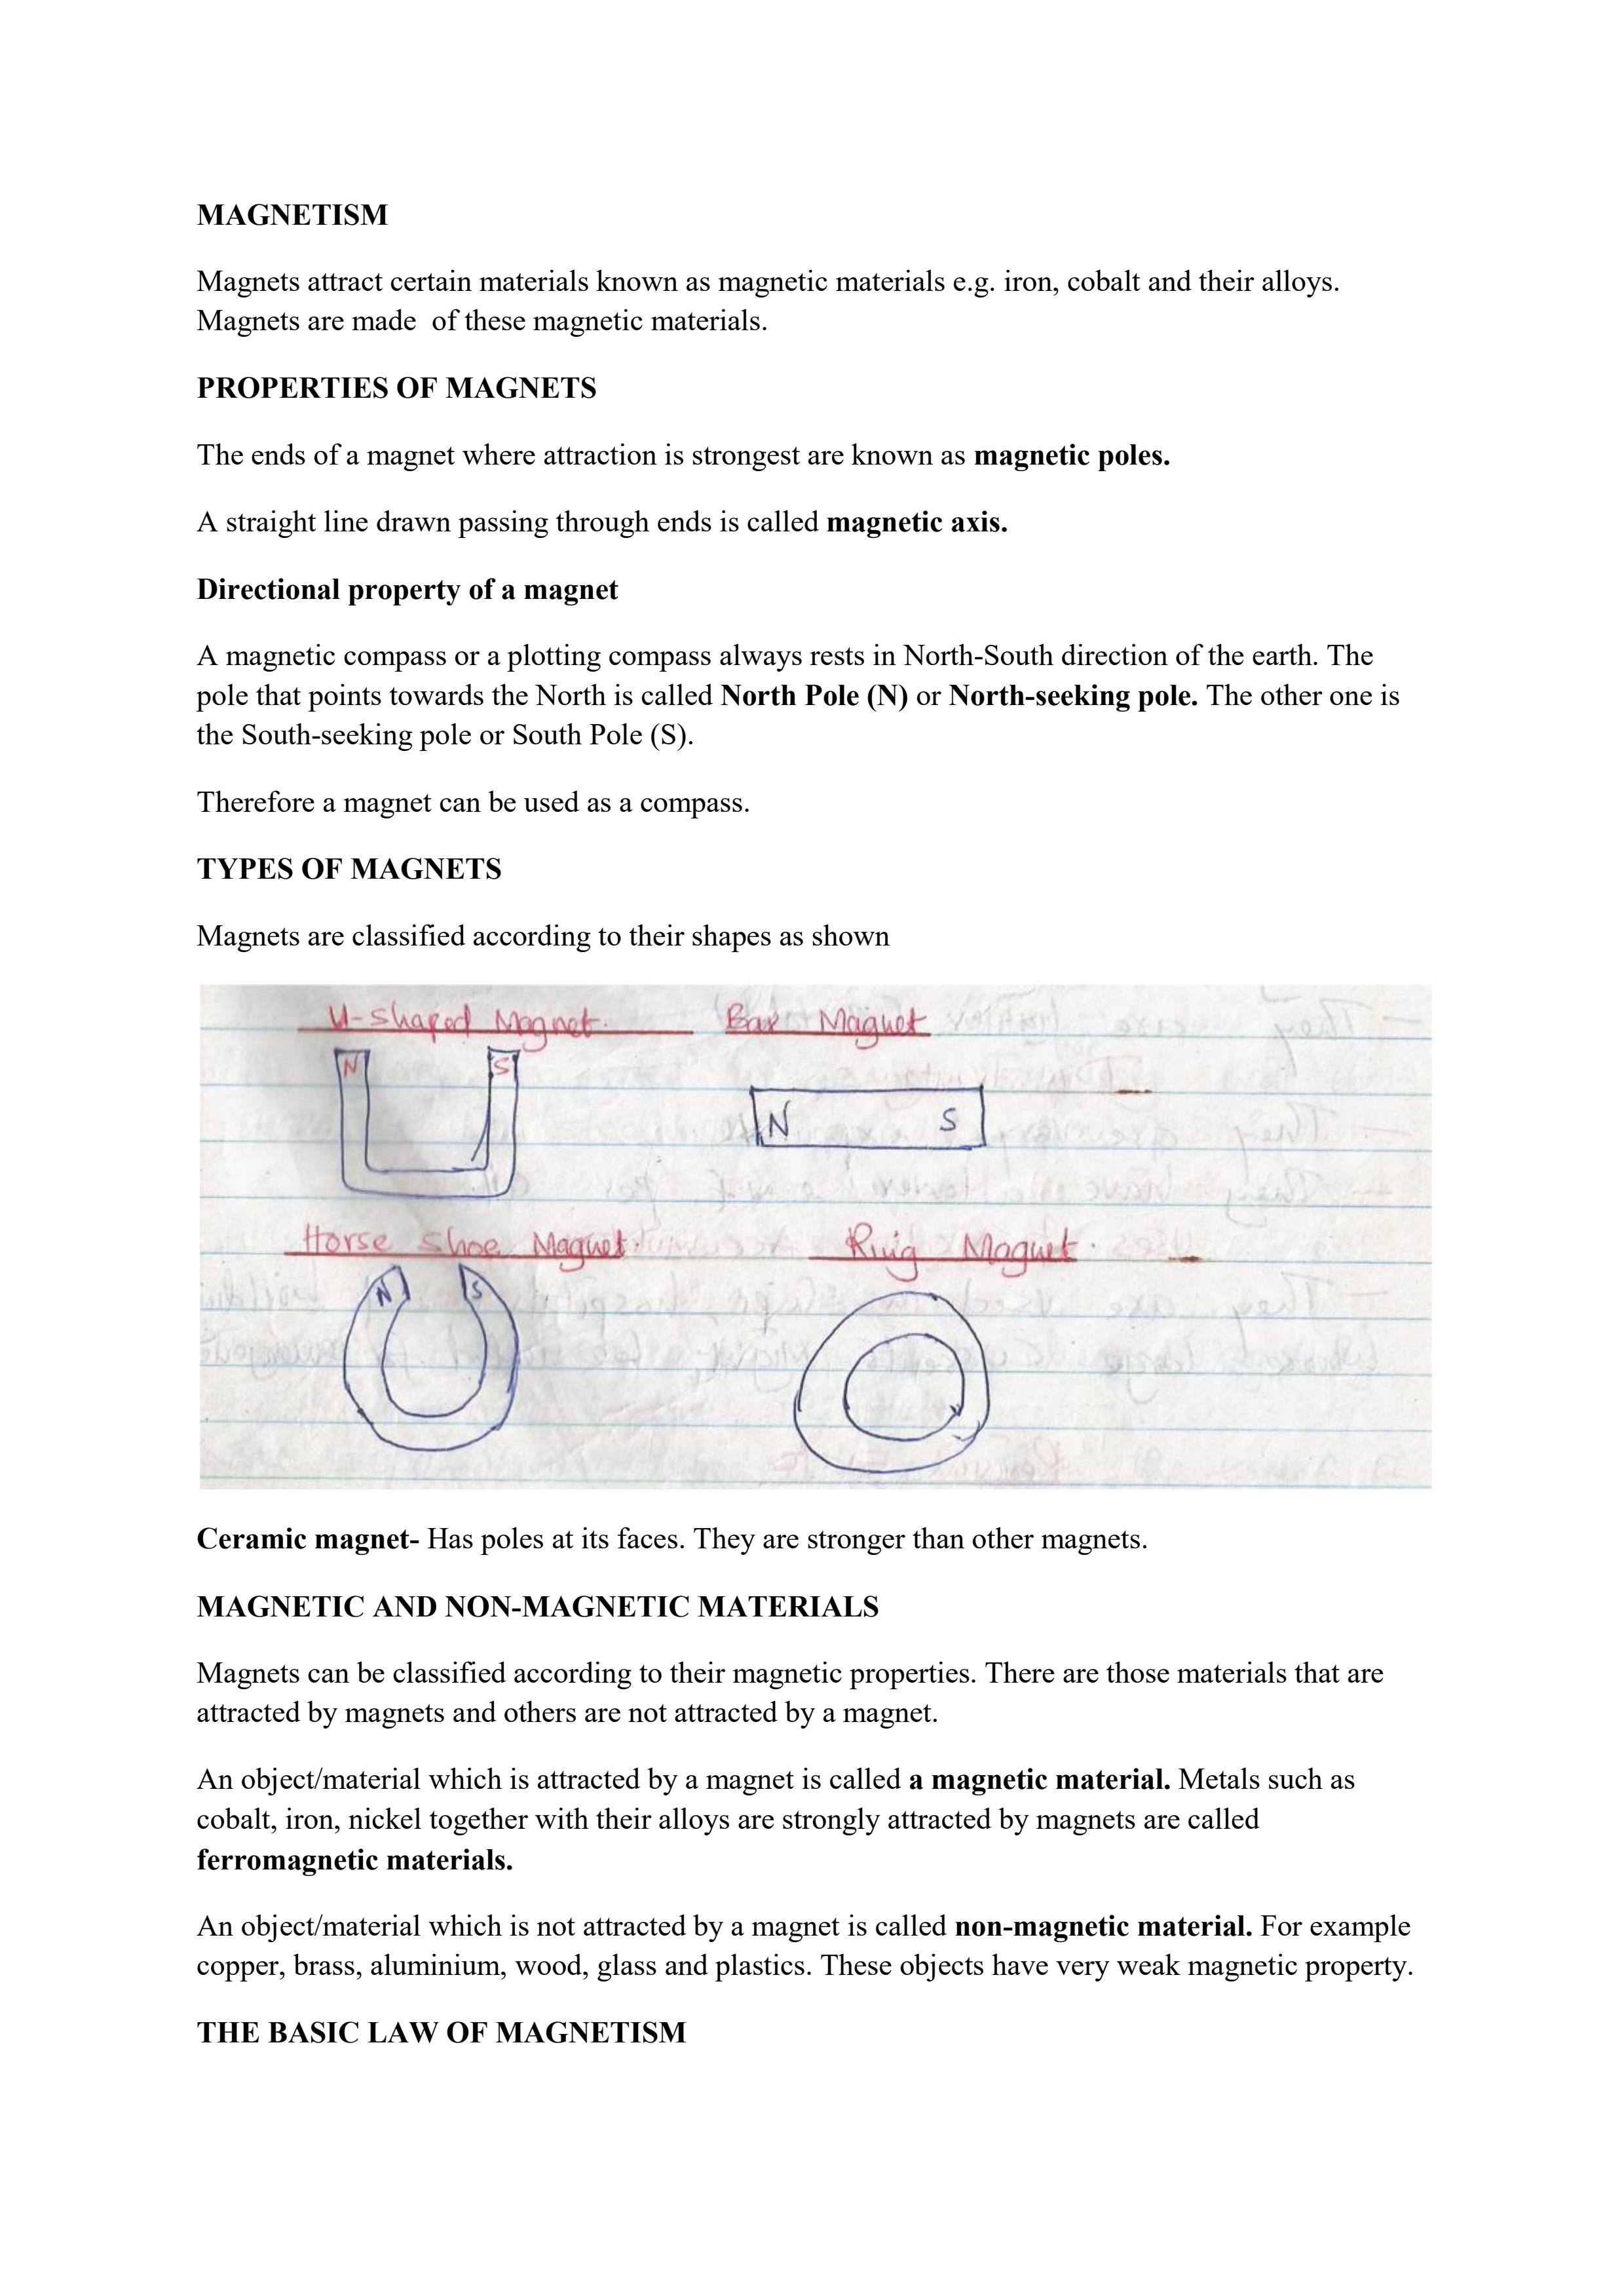 MAGNETISM
Magnets attract certain materials known as magnetic materials e.g. iron, cobalt and their alloys.
Magnets are made  of these magnetic materials.
PROPERTIES OF MAGNETS
The ends of a magnet where attraction is strongest are known as magnetic poles.
A straight line drawn passing through ends is called magnetic axis.
Directional property of a magnet
A magnetic compass or a plotting compass always rests in North-South direction of the earth. The
pole that points towards the North is called North Pole (N) or North-seeking pole. The other one is
the South-seeking pole or South Pole (S).
Therefore a magnet can be used as a compass.
TYPES OF MAGNETS
Magnets are classified according to their shapes as shown
U-shaped Magnet. Bar Magnet
N S
N S
Horse Shoe Magnet. Ring Magnet.
N S
Ceramic magnet- Has poles at its faces. They are stronger than other magnets.
MAGNETIC AND NON-MAGNETIC MATERIALS
Magnets can be classified according to their magnetic properties. There are those materials that are
attracted by magnets and others are not attracted by a magnet.
An object/material which is attracted by a magnet is called a magnetic material. Metals such as
cobalt, iron, nickel together with their alloys are strongly attracted by magnets are called
ferromagnetic materials.
An object/material which is not attracted by a magnet is called non-magnetic material. For example
copper, brass, aluminium, wood, glass and plastics. These objects have very weak magnetic property.
THE BASIC LAW OF MAGNETISM